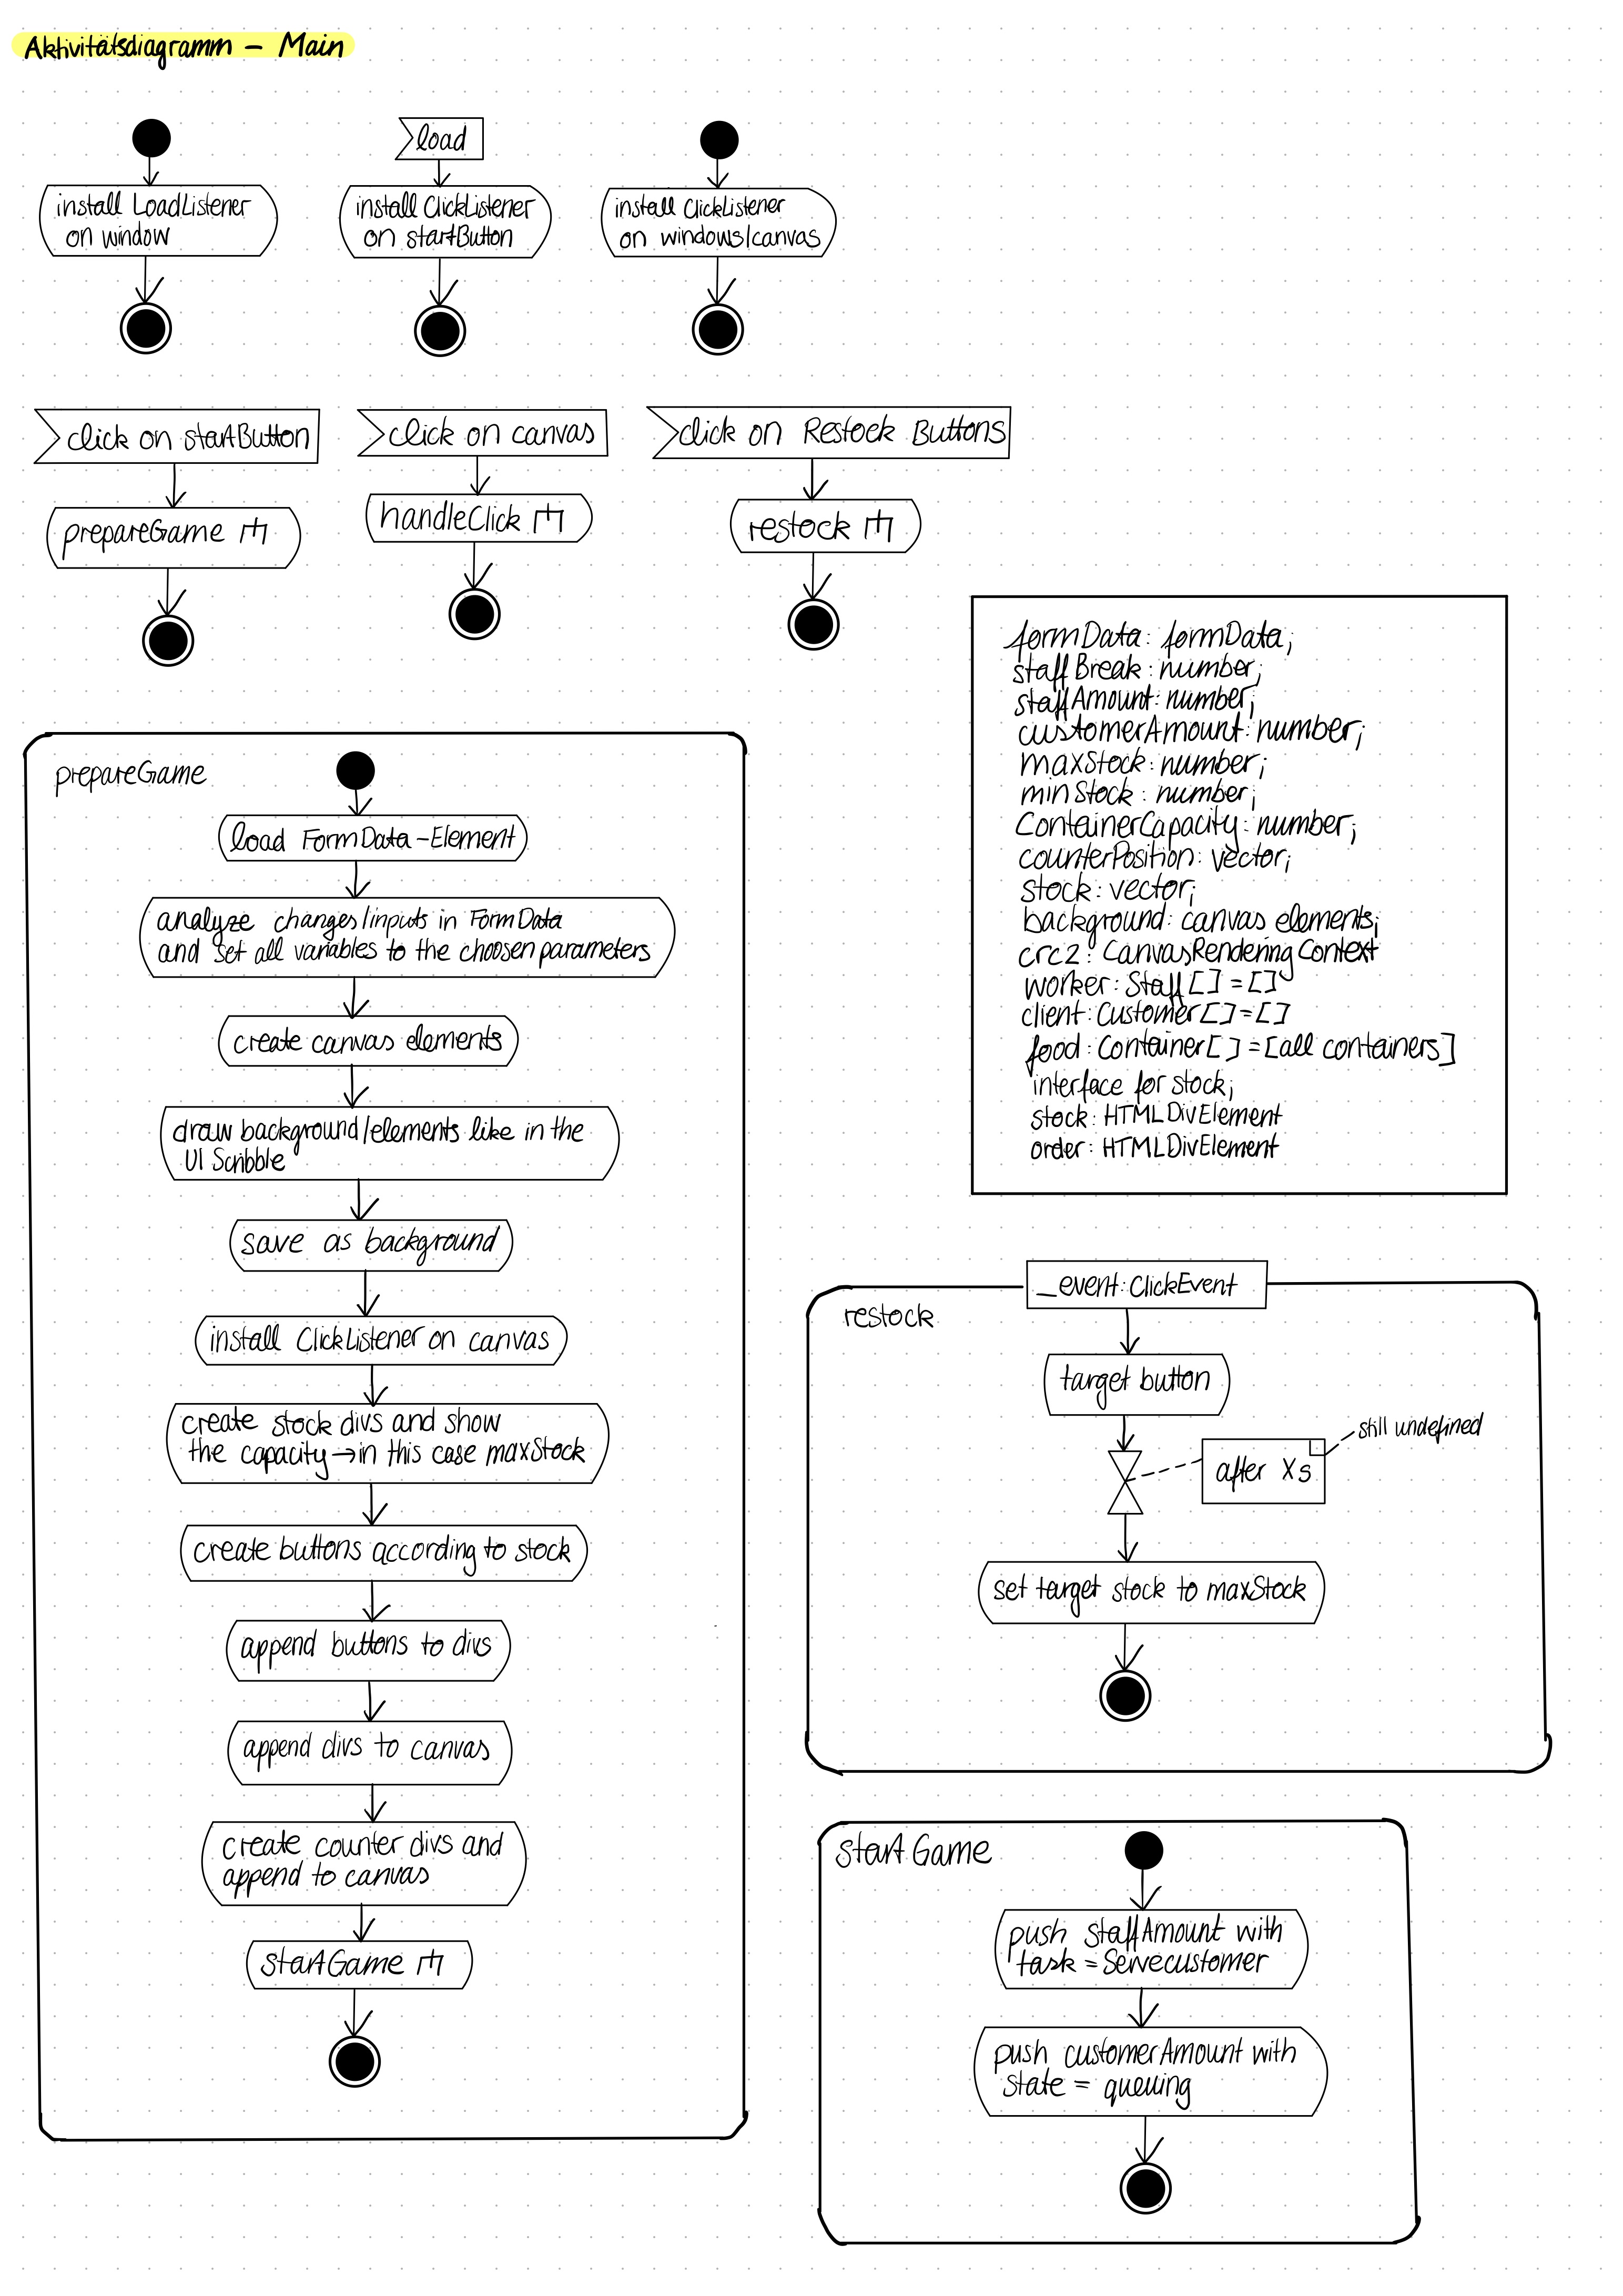 Aktivitätsdiagramm - Main
install LoadListener
on window
load
install ClickListener
on startButton
install ClickListener
on windows/canvas
click on startButton
prepareGame
click on canvas
handleClick
click on Restock Buttons
restock
formData: formData;
staffBreak: number;
staffAmount: number;
customerAmount: number;
maxStock: number;
minStock: number;
ContainerCapacity: number;
counterPosition: vector;
stock: vector;
background: canvas elements;
crc2: CanvasRenderingContext
worker: Staff[] = []
client: Customer[] = []
food: Container[] = [all containers]
interface for stock;
stock: HTMLDivElement
order: HTMLDivElement
prepareGame
load FormData-Element
analyze changes/inputs in FormData
and set all variables to the choosen parameters
create canvas elements
draw background/elements like in the
UI Scribble
save as background
install ClickListener on canvas
create stock divs and show
the capacity → in this case maxStock
create buttons according to stock
append buttons to divs
append divs to canvas
create counter divs and
append to canvas
startGame
_event: ClickEvent
restock
target button
after Xs
still undefined
set target stock to maxStock
startGame
push staffAmount with
task = Servecustomer
push customerAmount with
state = queuing